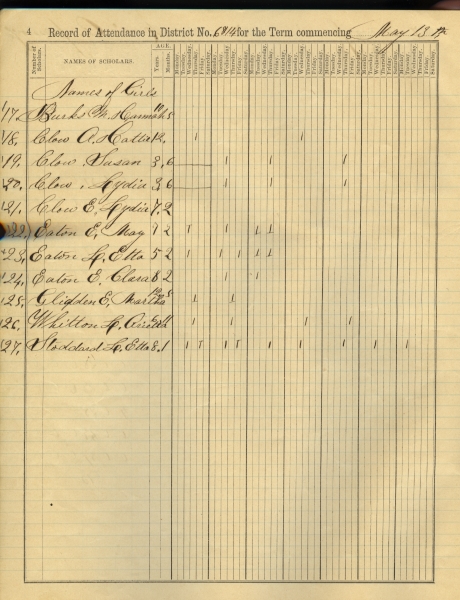 4 Record of Attendance in District No. 6 & 14 for the Term commencing May 13th
Number of Scholars. NAMES OF SCHOLARS. AGE. Years Months Monday Tuesday Wednesday Thursday Friday Saturday
Names of Girls
17. Burks M. Hannah 10 5
18. Clow A. Hattie 12.
19. Clow Susan 3 6
20. Clow, Lydia 3 6
21. Clow E. Lydia 7. 2
22. Eaton E. May 7 2
23. Eaton H. Etta 5 2
24. Eaton E. Clara 8 2
25. Glidden E. Martha
26. Whitton H.
27. Stoddard H. Etta 8. 1